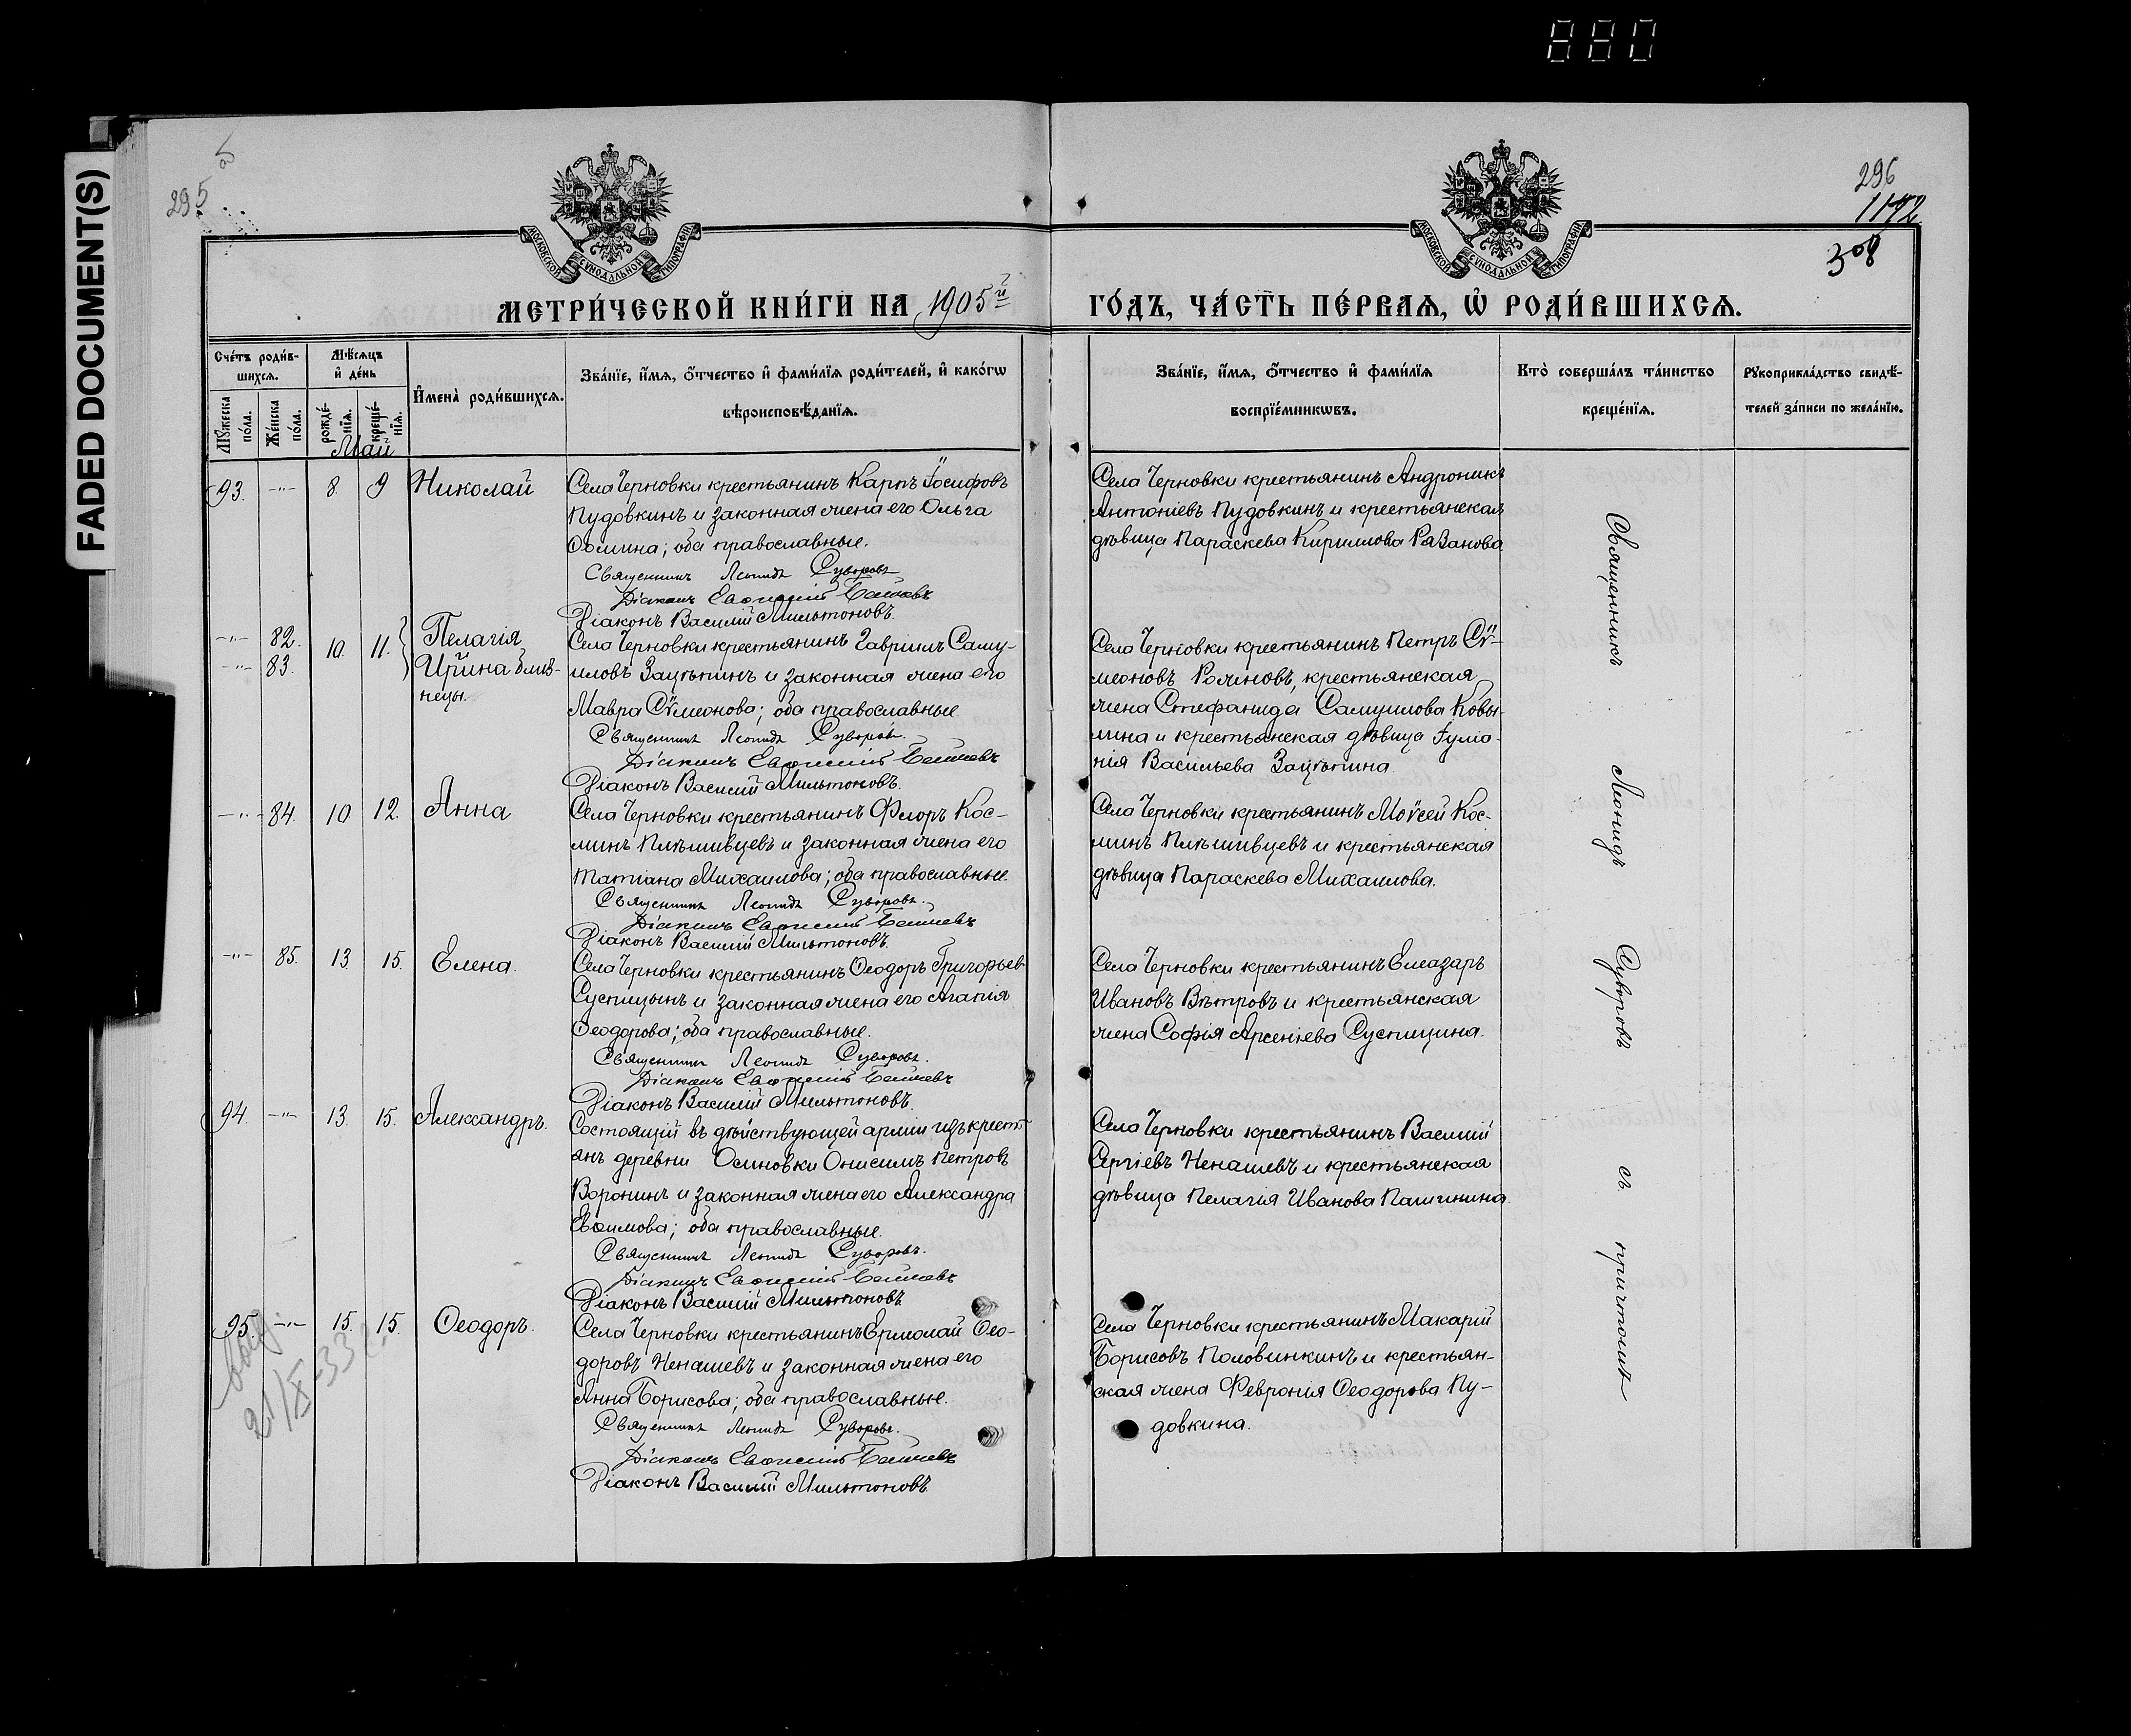 880
FADED DOCUMENT(S)
295
296
1172
308
МОСКОВСКОЙ СѴНОДАЛЬНОЙ ТИПОГРАФІИ
МОСКОВСКОЙ СѴНОДАЛЬНОЙ ТИПОГРАФІИ
МЕТРИ́ЧЕСКОЙ КНИ́ГИ НА 1905й ГО́ДЪ, ЧА́СТЬ ПЕ́РВАѦ, Ѡ҆ РОДИ́ВШИХСѦ.
Сче́тъ роди́в-
шихсѧ.
Мꙋ́жеска по́ла.
Же́нска по́ла.
Мѣ́сѧцъ
и҆ де́нь
рожде́-
нїѧ.
креще́-
нїѧ.
И҆мена̀ роди́вшихсѧ.
Зва́нїе, и҆́мѧ, ѻ҆́тчество и҆ фами́лїѧ роди́телей, и҆ како́гѡ
вѣроисповѣ́данїѧ.
Зва́нїе, и҆́мѧ, ѻ҆́тчество и҆ фами́лїѧ
воспрїе́мникѡвъ.
Кто̀ соверша́лъ та́инство
креще́нїѧ.
Рꙋкоприкла́дство свидѣ́-
телей за́писи по жела́нїю.
Май
93. -"- 8. 9 Николай
Села Черновки крестьянинъ Карпъ Іосифовъ
Пудовкинъ и законная жена его Ольга
Ѳомина; оба православные.
Священникъ Леонидъ Суворовъ
Діаконъ Евѳимій
Діаконъ Василій Мильтоновъ.
Села Черновки крестьянинъ Андроникъ
Антоніевъ Пудовкинъ и крестьянская
дѣвица Параскева Кириллова Рязанова
-"- 82. 10. 11. Пелагія
-"- 83. Ирина близ-
нецы.
Села Черновки крестьянинъ Гавріилъ Саму-
иловъ Зацѣпинъ и законная жена его
Мавра Сѵмеонова; оба православные
Священникъ Леонидъ Суворовъ.
Діаконъ Евѳимій
Діаконъ Василій Мильтоновъ.
Села Черновки крестьянинъ Петръ Сѵ-
меоновъ Роминовъ, крестьянская
жена Стефанида Самуилова Ковы-
лина и крестьянская дѣвица Іуліа-
нія Васильева Зацѣпина
-"- 84. 10. 12. Анна
Села Черновки крестьянинъ Флоръ Кос-
минъ Плѣшивцевъ и законная жена его
Татіана Михаилова; оба православные
Священникъ Леонидъ Суворовъ.
Діаконъ Евѳимій
Діаконъ Василій Мильтоновъ.
Села Черновки крестьянинъ Моѵсей Кос-
минъ Плѣшивцевъ и крестьянская
дѣвица Параскева Михаилова.
-"- 85. 13. 15. Елена.
Села Черновки крестьянинъ Ѳеодоръ Григорьев
Суспицынъ и законная жена его Агапія
Ѳеодорова; оба православные.
Священникъ Леонидъ Суворовъ.
Діаконъ Евѳимій
Діаконъ Василій Мильтоновъ.
Села Черновки крестьянинъ Елеазаръ
Ивановъ Вѣтровъ и крестьянская
жена Софія Арсеніева Суспицина.
94. -"- 13. 15. Александръ.
Состоящій въ дѣйствующей арміи изъ крест-
янъ деревни Осиновки Онисимъ Петровъ
Воронинъ и законная жена его Александра
Евѳимова; оба православные.
Священникъ Леонидъ Суворовъ.
Діаконъ Евѳимій
Діаконъ Василій Мильтоновъ
Села Черновки крестьянинъ Василій
Сергіевъ Ненашевъ и крестьянская
дѣвица Пелагія Иванова Пашинина
95. -"- 15. 15. Ѳеодоръ.
21/IX-33
Села Черновки крестьянинъ Ермолай Ѳео-
доровъ Ненашевъ и законная жена его
Анна Борисова; оба православные.
Священникъ Леонидъ Суворовъ.
Діаконъ Евѳимій
Діаконъ Василій Мильтоновъ
Села Черновки крестьянинъ Макарій
Борисовъ Половинкинъ и крестьян-
ская жена Февронія Ѳеодорова Пу-
довкина.
Священникъ Леонидъ Суворовъ съ причтомъ